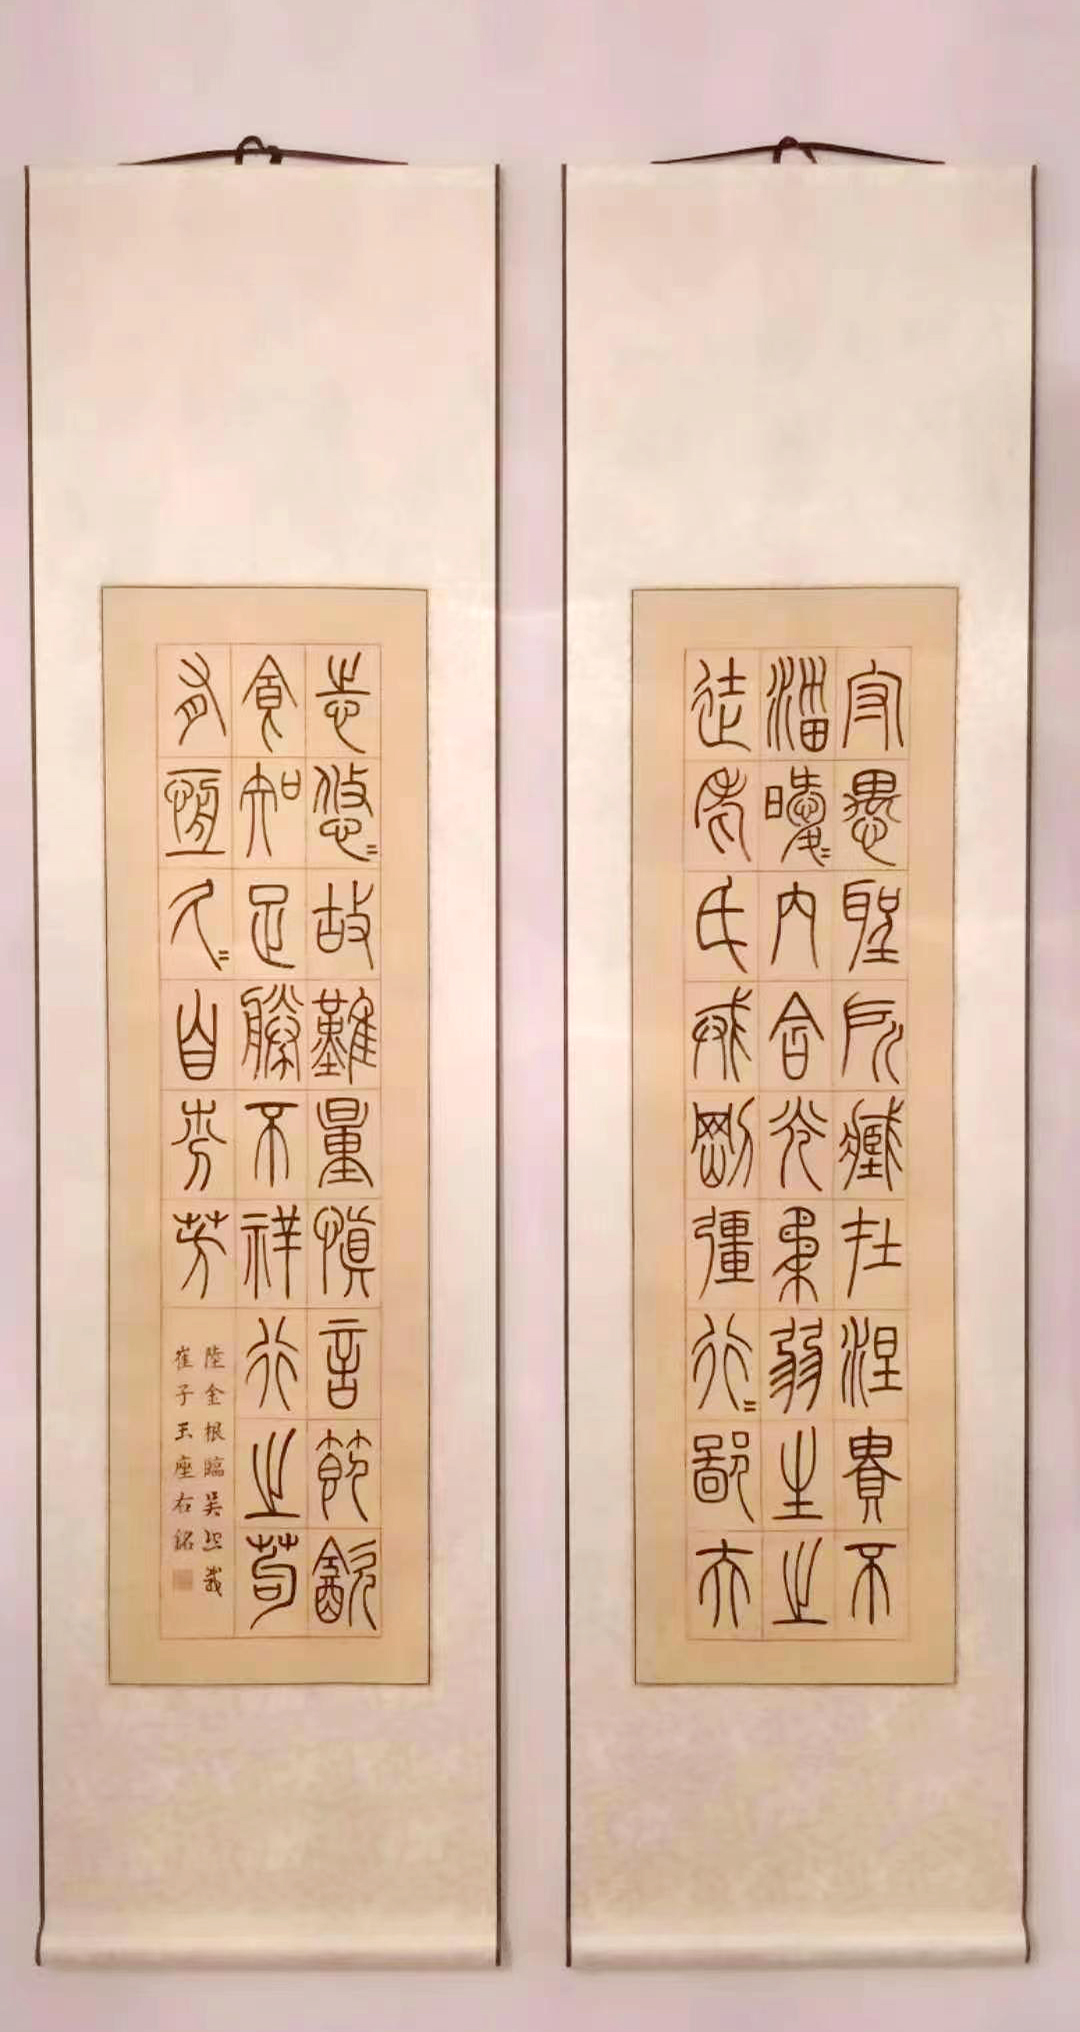 守愚聖所臧在涅貴不
淄曖〻內含光柔弱生之
徒老氏戒剛彊行〻鄙夫
志悠〻故難量慎言節飲
食知足勝不祥行之苟
有恆久〻自芬芳
陸金根臨吳熙載
崔子玉座右銘